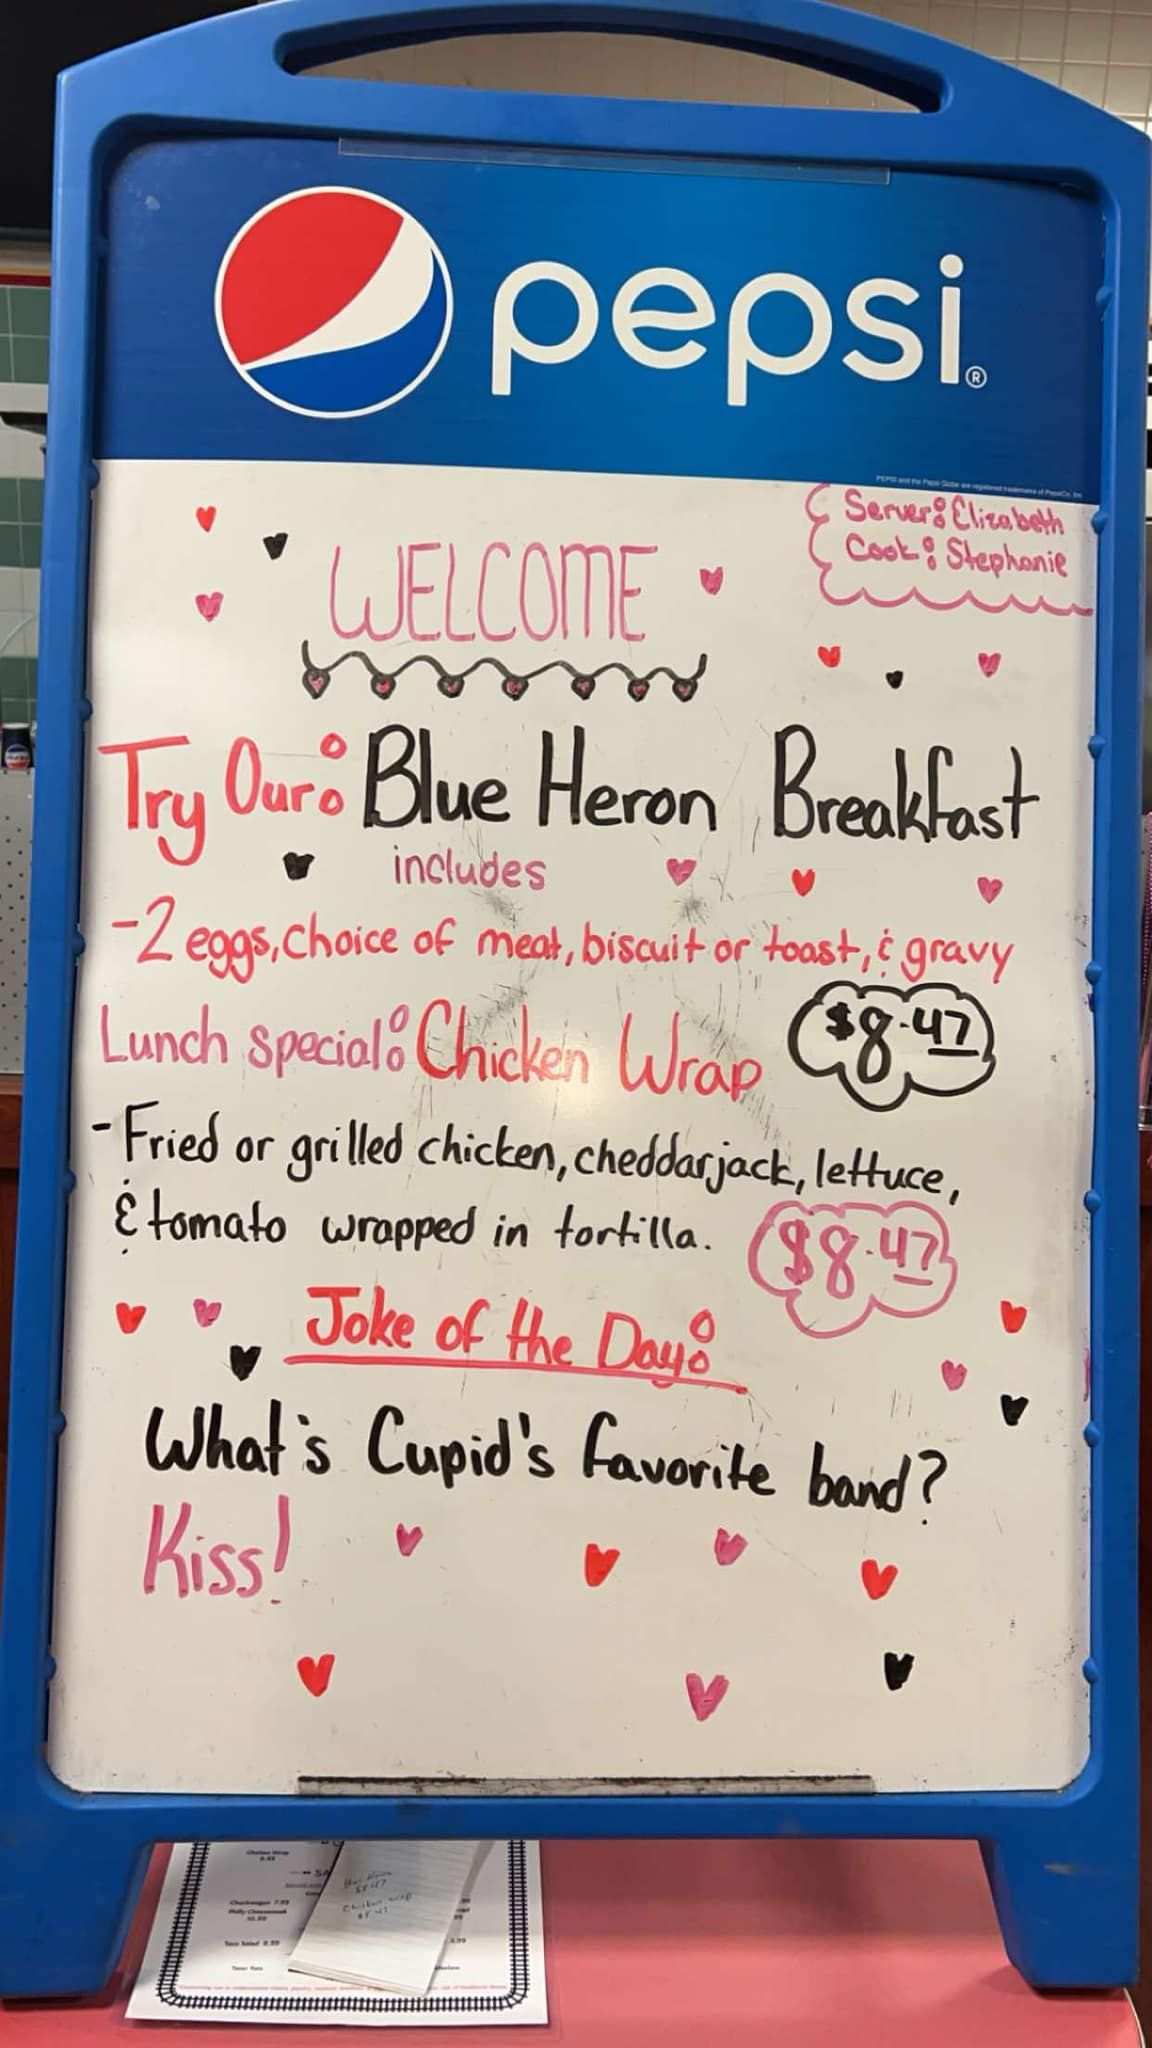 pepsi®
PEPSI and the Pepsi Globe are registered trademarks of PepsiCo, Inc.
Server: Elizabeth
Cook: Stephanie
WELCOME
Try Our: Blue Heron Breakfast
includes
-2 eggs, choice of meat, biscuit or toast, & gravy
$8.47
Lunch special: Chicken Wrap
-Fried or grilled chicken, cheddarjack, lettuce,
& tomato wrapped in tortilla. $8.47
Joke of the Day:
What's Cupid's favorite band?
Kiss!
Chicken Wrap
Philly Cheesesteak
10.99
Taco Salad 8.99